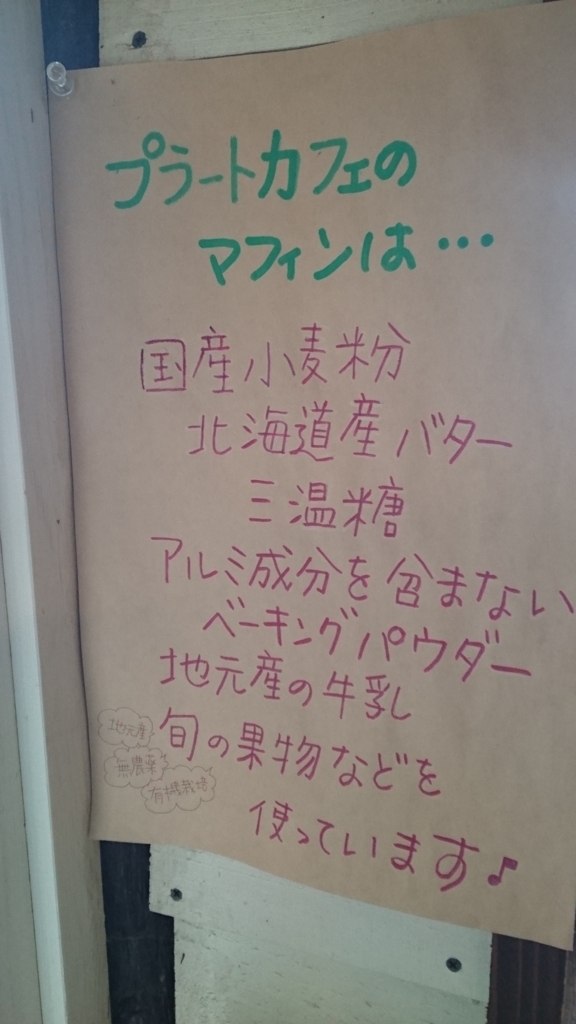 プラートカフェの
マフィンは…
国産小麦粉
北海道産バター
三温糖
アルミ成分を含まない
ベーキングパウダー
地元産の牛乳
旬の果物などを
使っています♪
地元産
無農薬
有機栽培